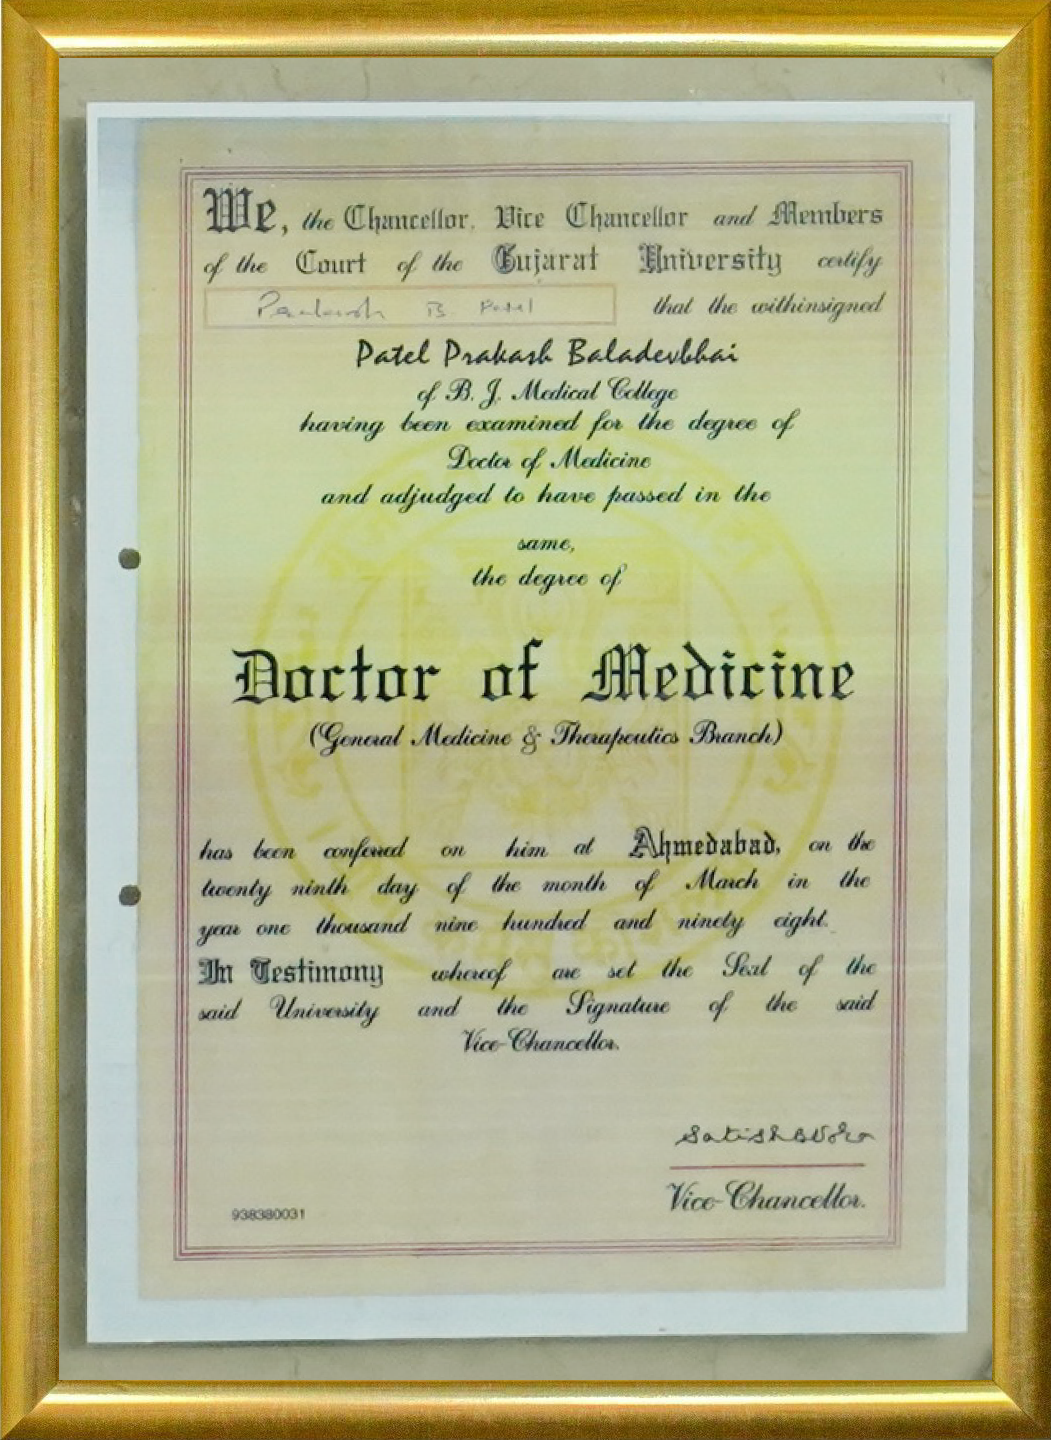 We, the Chancellor, Vice Chancellor and Members
of the Court of the Gujarat University certify
Prakash B Patel that the withinsigned
Patel Prakash Baladevbhai
of B. J. Medical College
having been examined for the degree of
Doctor of Medicine
and adjudged to have passed in the
same,
the degree of
Doctor of Medicine
(General Medicine & Therapeutics Branch)
has been conferred on him at Ahmedabad, on the
twenty ninth day of the month of March in the
year one thousand nine hundred and ninety eight.
In Testimony whereof are set the Seal of the
said University and the Signature of the said
Vice-Chancellor.
Vice-Chancellor.
938380031